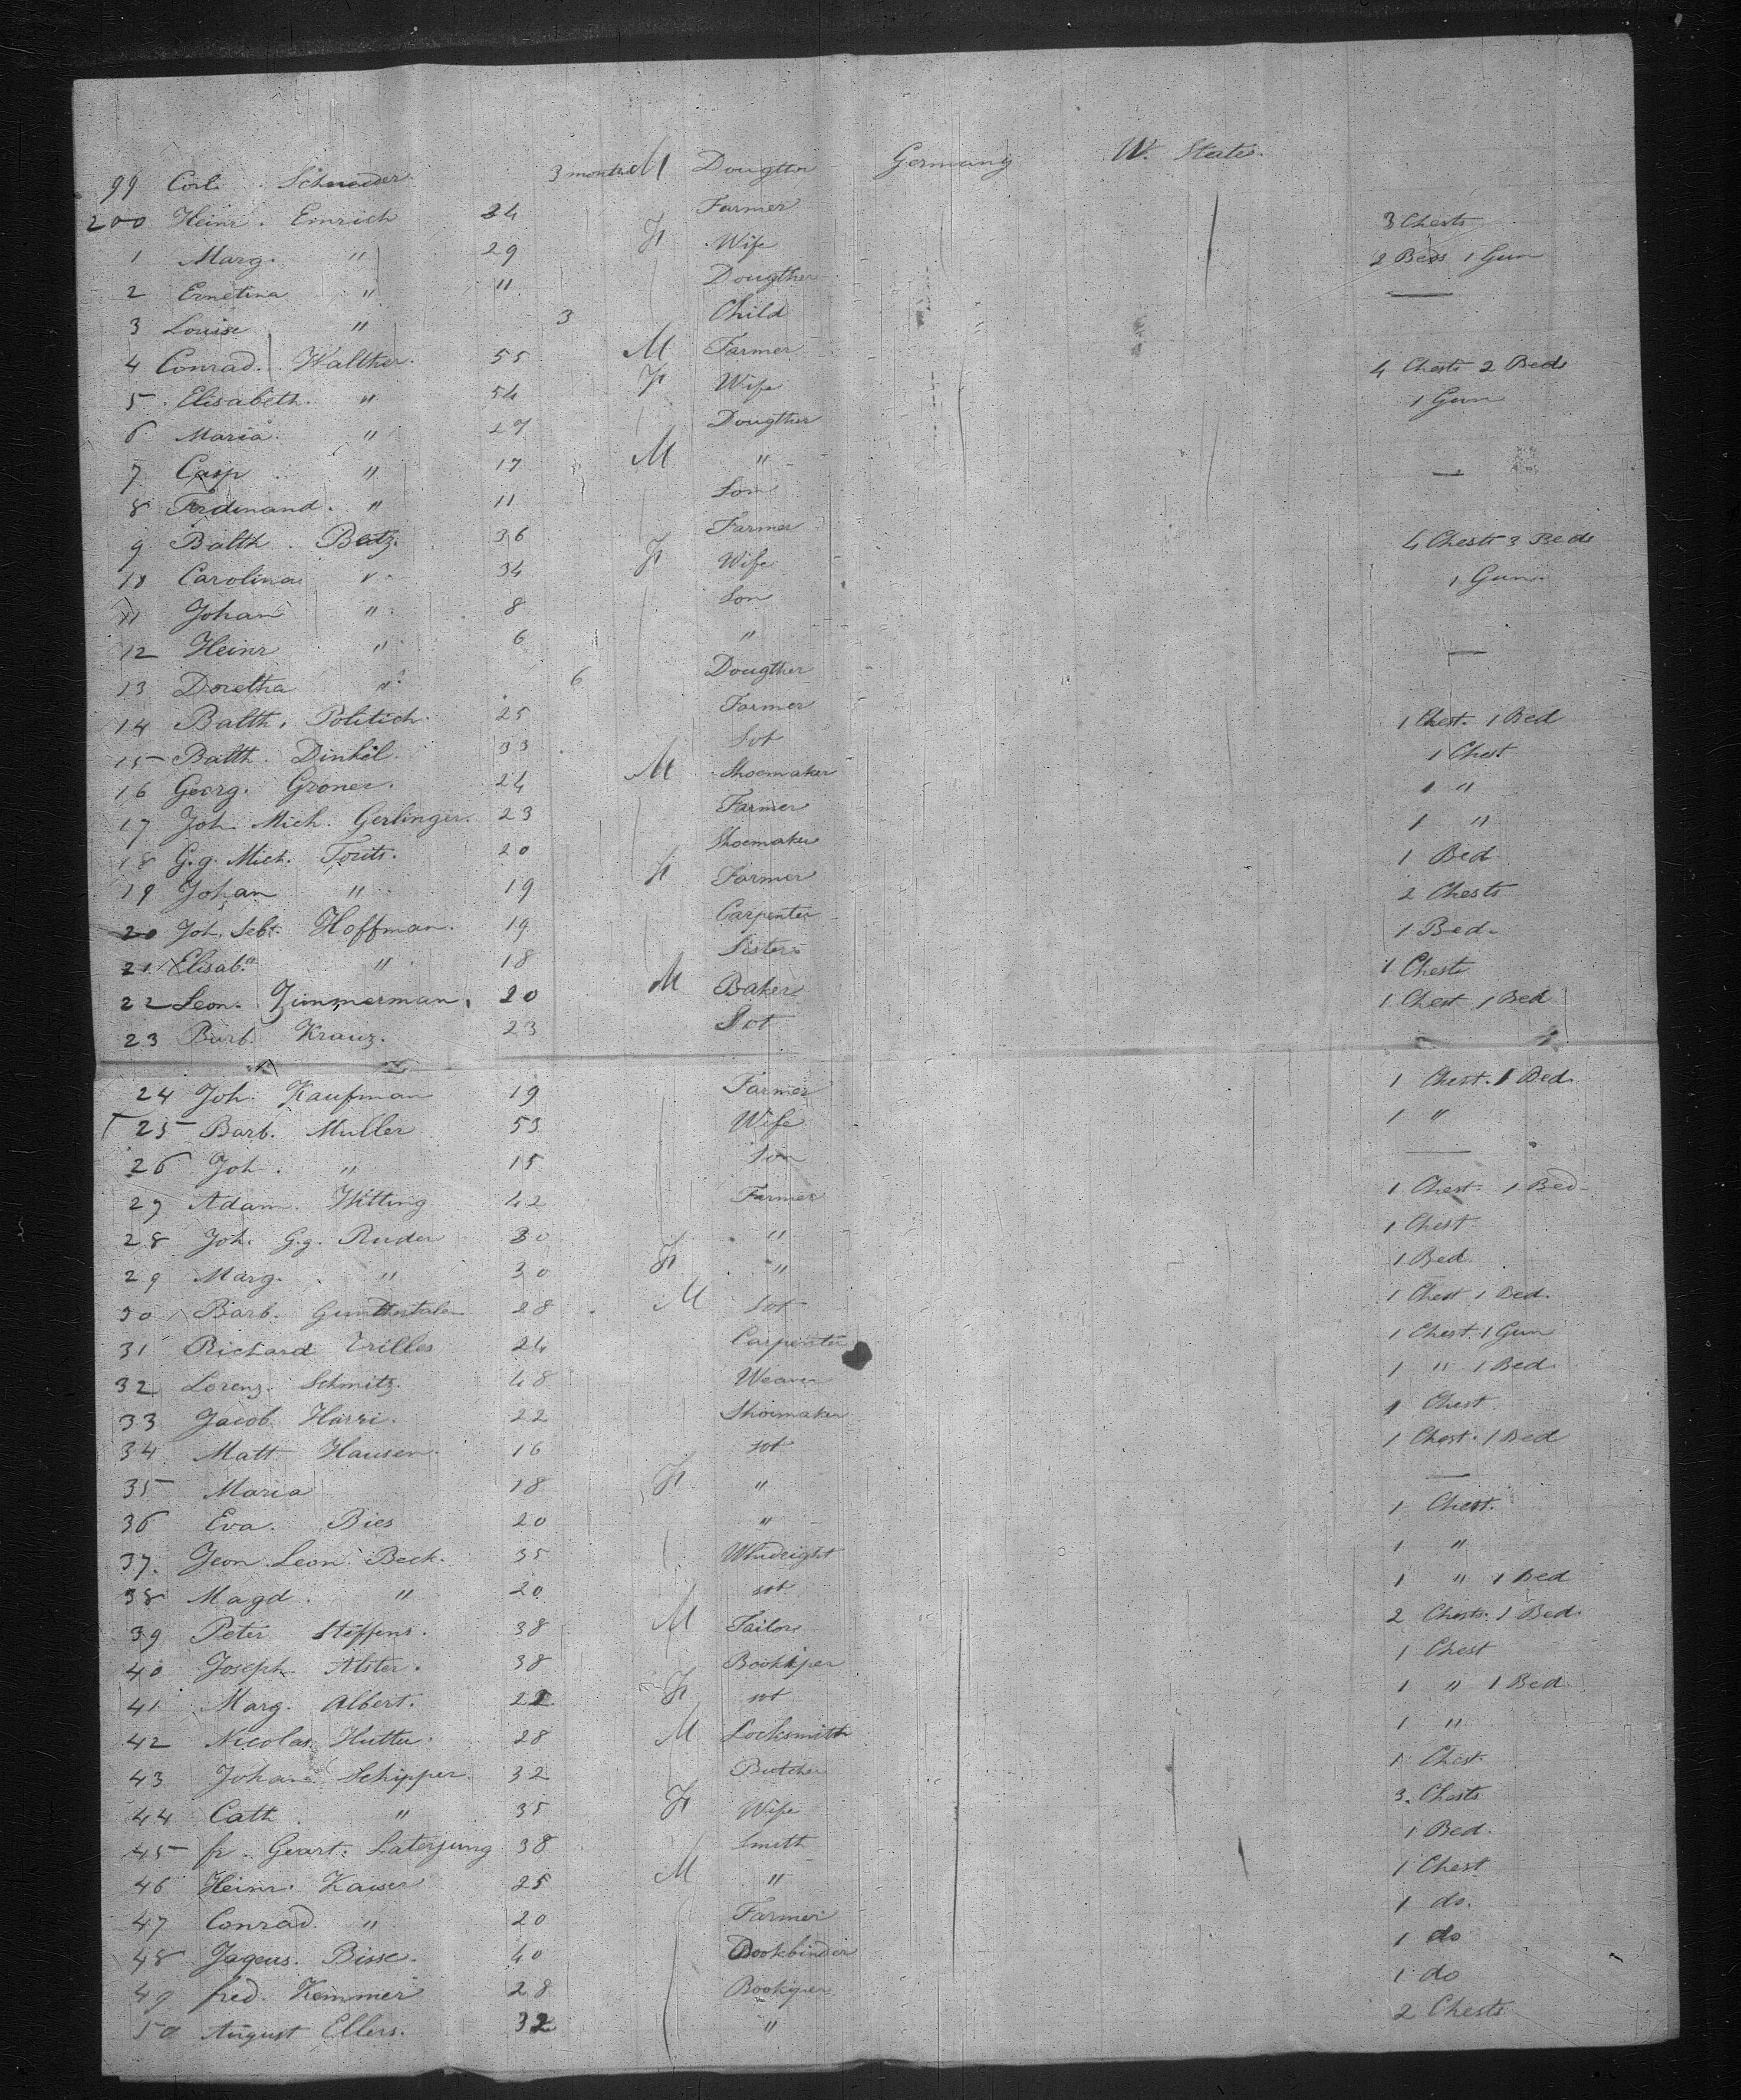 99 Carl. Schneider. 3 months M Dougtter Germany W. States.
200 Heinr. Emrich 34 Farmer 3 Chests
1 Marg. " 29 F Wife 2 Beds 1 Gun
2 Ernetina " 11 Dougther —
3 Louise " 3 Child
4 Conrad. Walther. 55 M Farmer 4 Chests 2 Beds
5 Elisabeth. " 54 F Wife 1 Gun
6 Maria. " 27 Dougther
7 Casp " 17 M " —
8 Ferdinand. " 11 Son
9 Balth. Betz. 36 Farmer 4 Chests 3 Beds
10 Carolina " 34 F Wife 1 Gun.
11 Johan " 8 Son
12 Heinr " 6 " —
13 Doretha " 6 Dougther
14 Balth. Politich. 25 Farmer 1 Chest. 1 Bed
15 Balth. Dinkel. 33 Sot 1 Chest
16 Georg. Groner. 24 M Shoemaker 1 "
17 Joh. Mich. Gerlinger. 23 Farmer 1 "
18 G.g. Mich. 20 Shoemaker 1 Bed
19 Johan " 19 F Farmer 2 Chests
20 Joh. Sebt. Hoffman. 19 Carpenter 1 Bed.
21 Elisab. " 18 Sister 1 Chest
22 Leon. Zimmerman. 20 M Baker 1 Chest 1 Bed
23 Barb. Kranz. 23 Sot
24 Joh. Kaufman 19 Farmer 1 Chest. 1 Bed.
25 Barb. Muller 53 Wife 1 "
26 Joh. " 15 Son —
27 Adam. Witting 42 Farmer 1 Chest. 1 Bed.
28 Joh. G.g. Ruder 30 " 1 Chest
29 Marg. " 30 F " 1 Bed
30 Barb. 28 M Sot 1 Chest 1 Bed.
31 Richard Trilles 24 Carpenter 1 Chest. 1 Gun
32 Lorenz. Schmitz. 48 Weaver 1 " 1 Bed.
33 Jacob. Harri. 22 Shoemaker 1 Chest.
34 Matt Hausen. 16 sot 1 Chest. 1 Bed
35 Maria 18 F " —
36 Eva. Bies 20 " 1 Chest.
37. Jeon. Leon. Beck. 35 1 "
38 Magd. " 20 sot 1 " 1 Bed
39 Peter Steffens. 38 M Tailor 2 Chests. 1 Bed.
40 Joseph. Alster. 38 Bookiper 1 Chest
41 Marg. Albert. 22 F sot 1 " 1 Bed.
42 Nicolas Hutter. 28 M Locksmith 1 "
43 Johan Schipper. 32 Butcher 1 Chest.
44 Cath. " 35 F Wife 3. Chests
45 fr. Gerart. Laterjung 38 Smith 1 Bed.
46 Heinr. Kaiser 25 M " 1 Chest
47 Conrad. " 20 Farmer 1 do.
48 Bisse. 40 Bookbinder 1 do
49 fred. Kemmer 28 Bookiper 1 do
50 August Ellers. 32 " 2 Chests